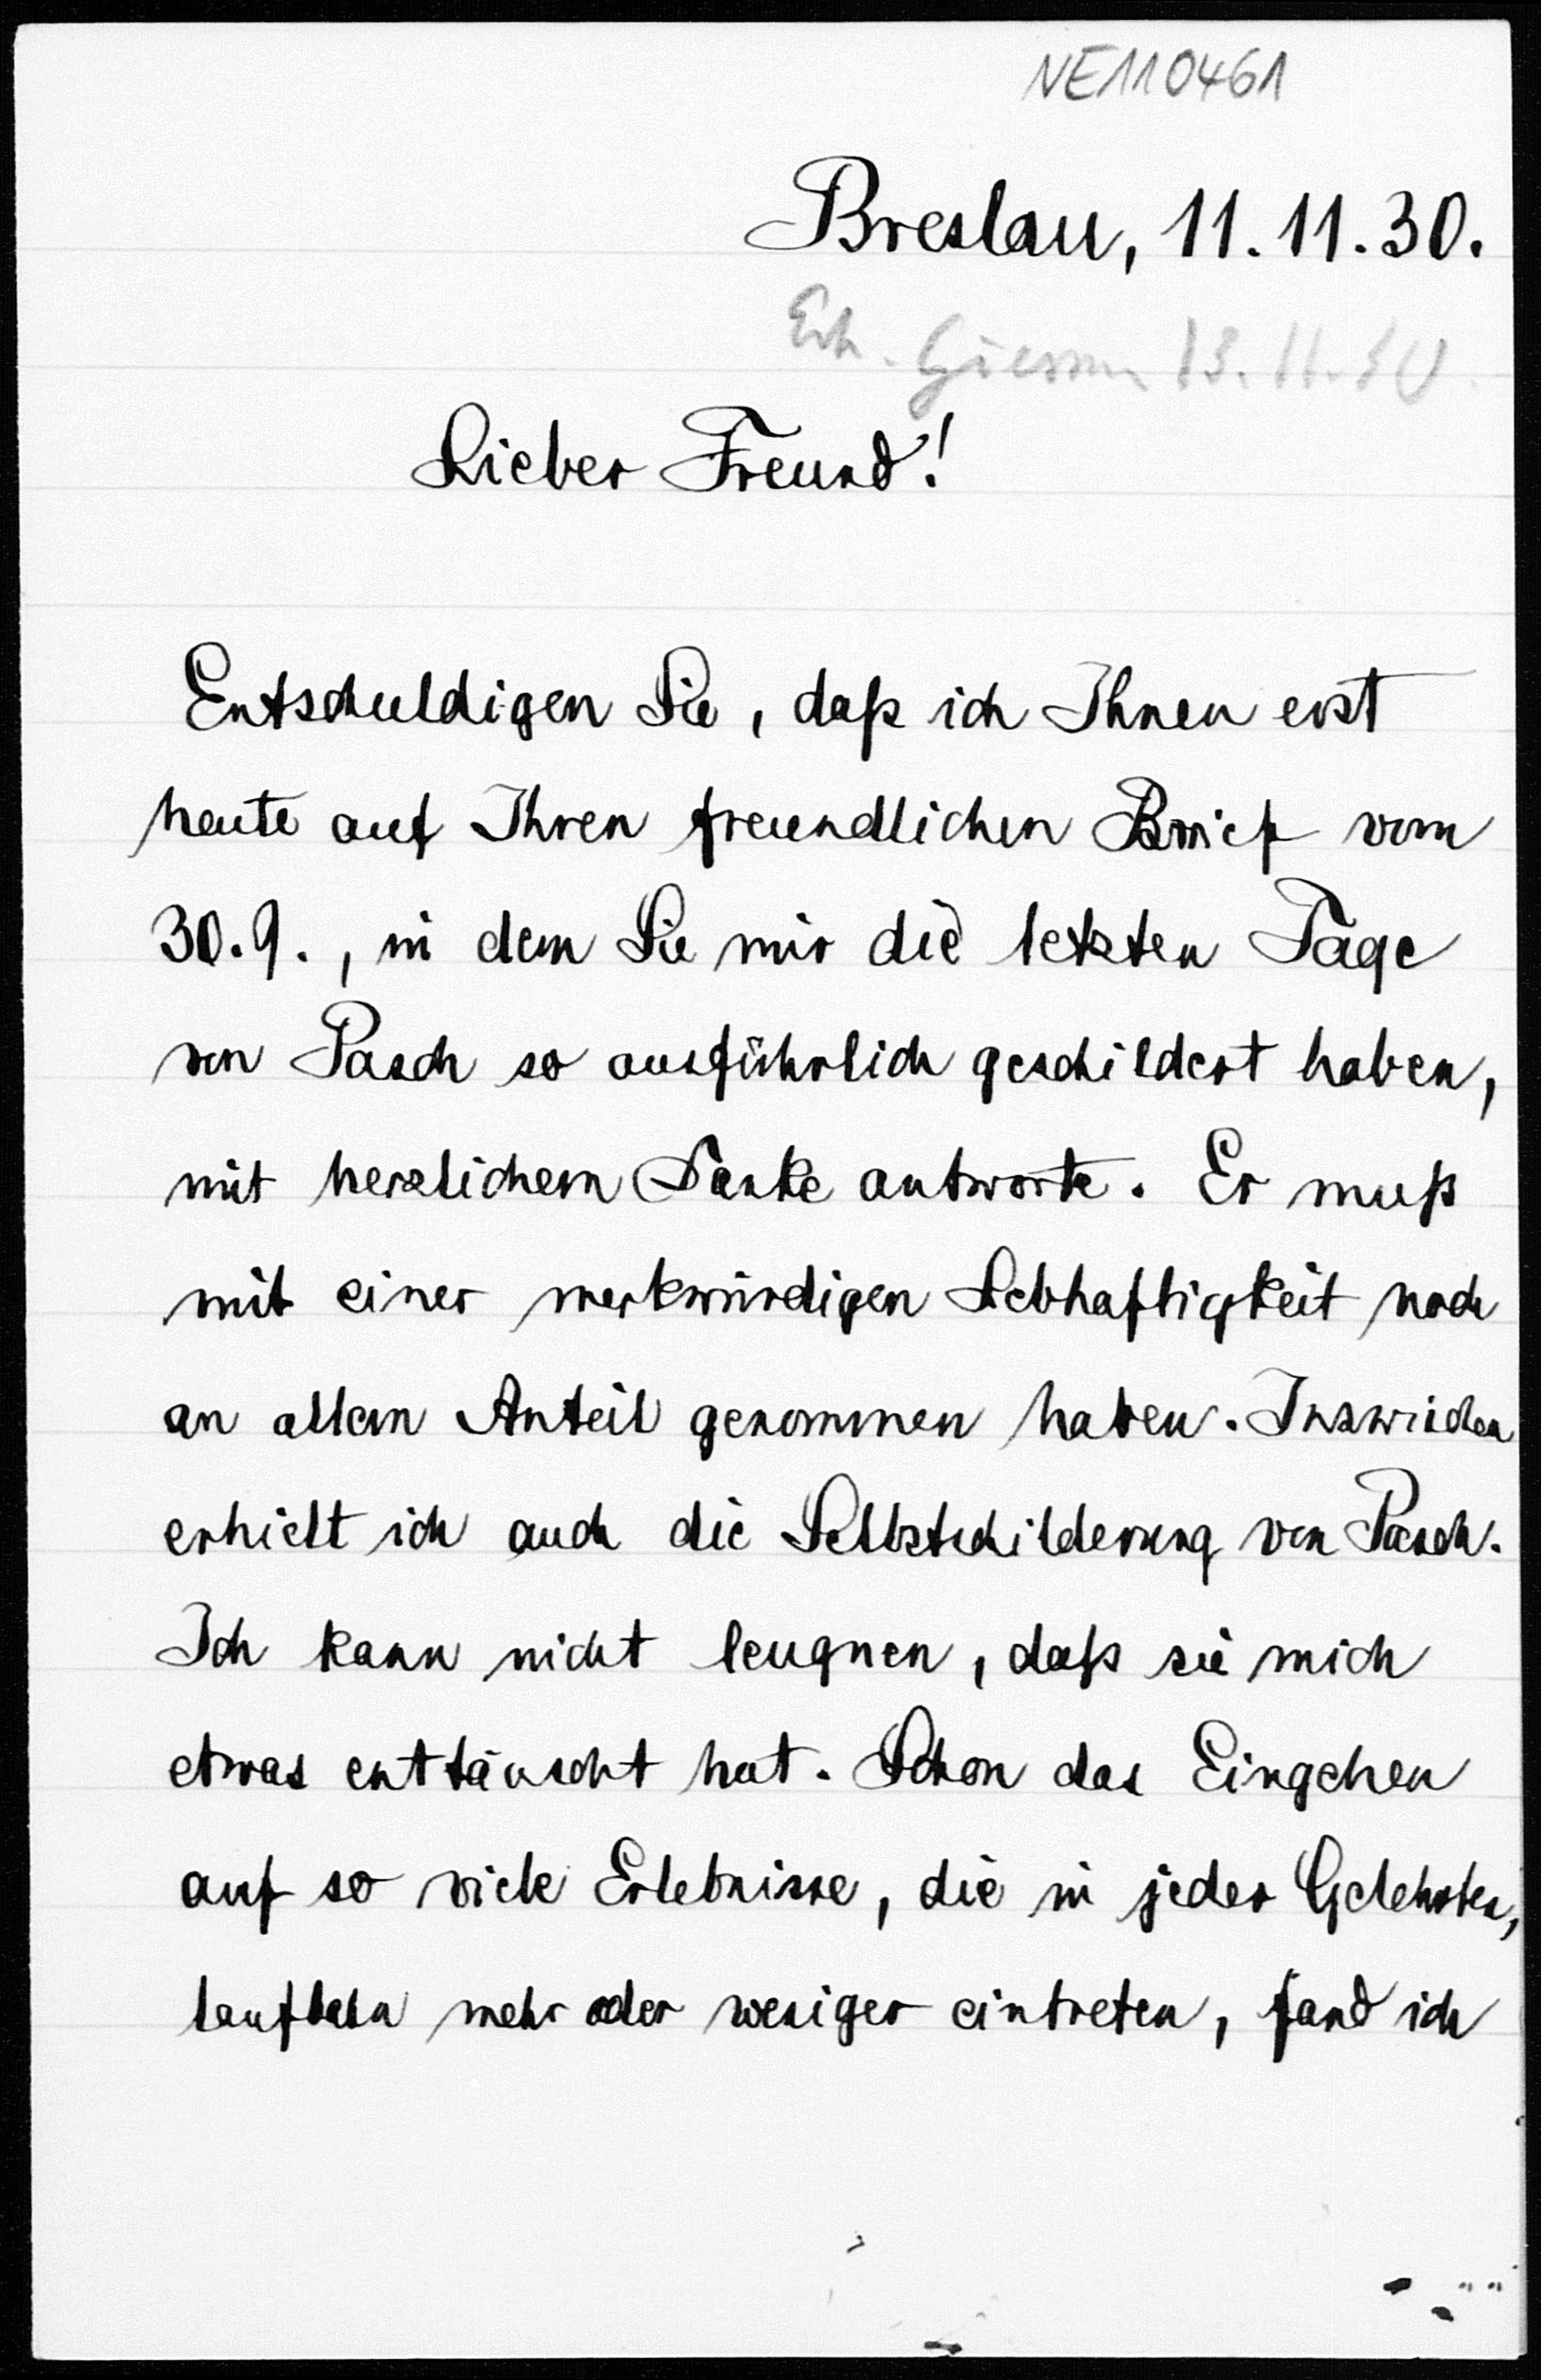 NE110461
Breslau, 11.11.30.
Erh. Giessen 13.11.30.
Lieber Freund!
Entschuldigen Sie, daß ich Ihnen erst
heute auf Ihren freundlichen Brief vom
30.9., in dem Sie mir die letzten Tage
von Pasch so ausführlich geschildert haben,
mit herzlichem Danke antworte. Er muß
mit einer merkwürdigen Lebhaftigkeit noch
an allem Anteil genommen haben. Inzwischen
erhielt ich auch die Selbstschilderung von Pasch.
Ich kann nicht leugnen, daß sie mich
etwas enttäuscht hat. Schon das Eingehen
auf so viele Erlebnisse, die in jeder Gelehrten,
laufbahn mehr oder weniger eintreten, fand ich